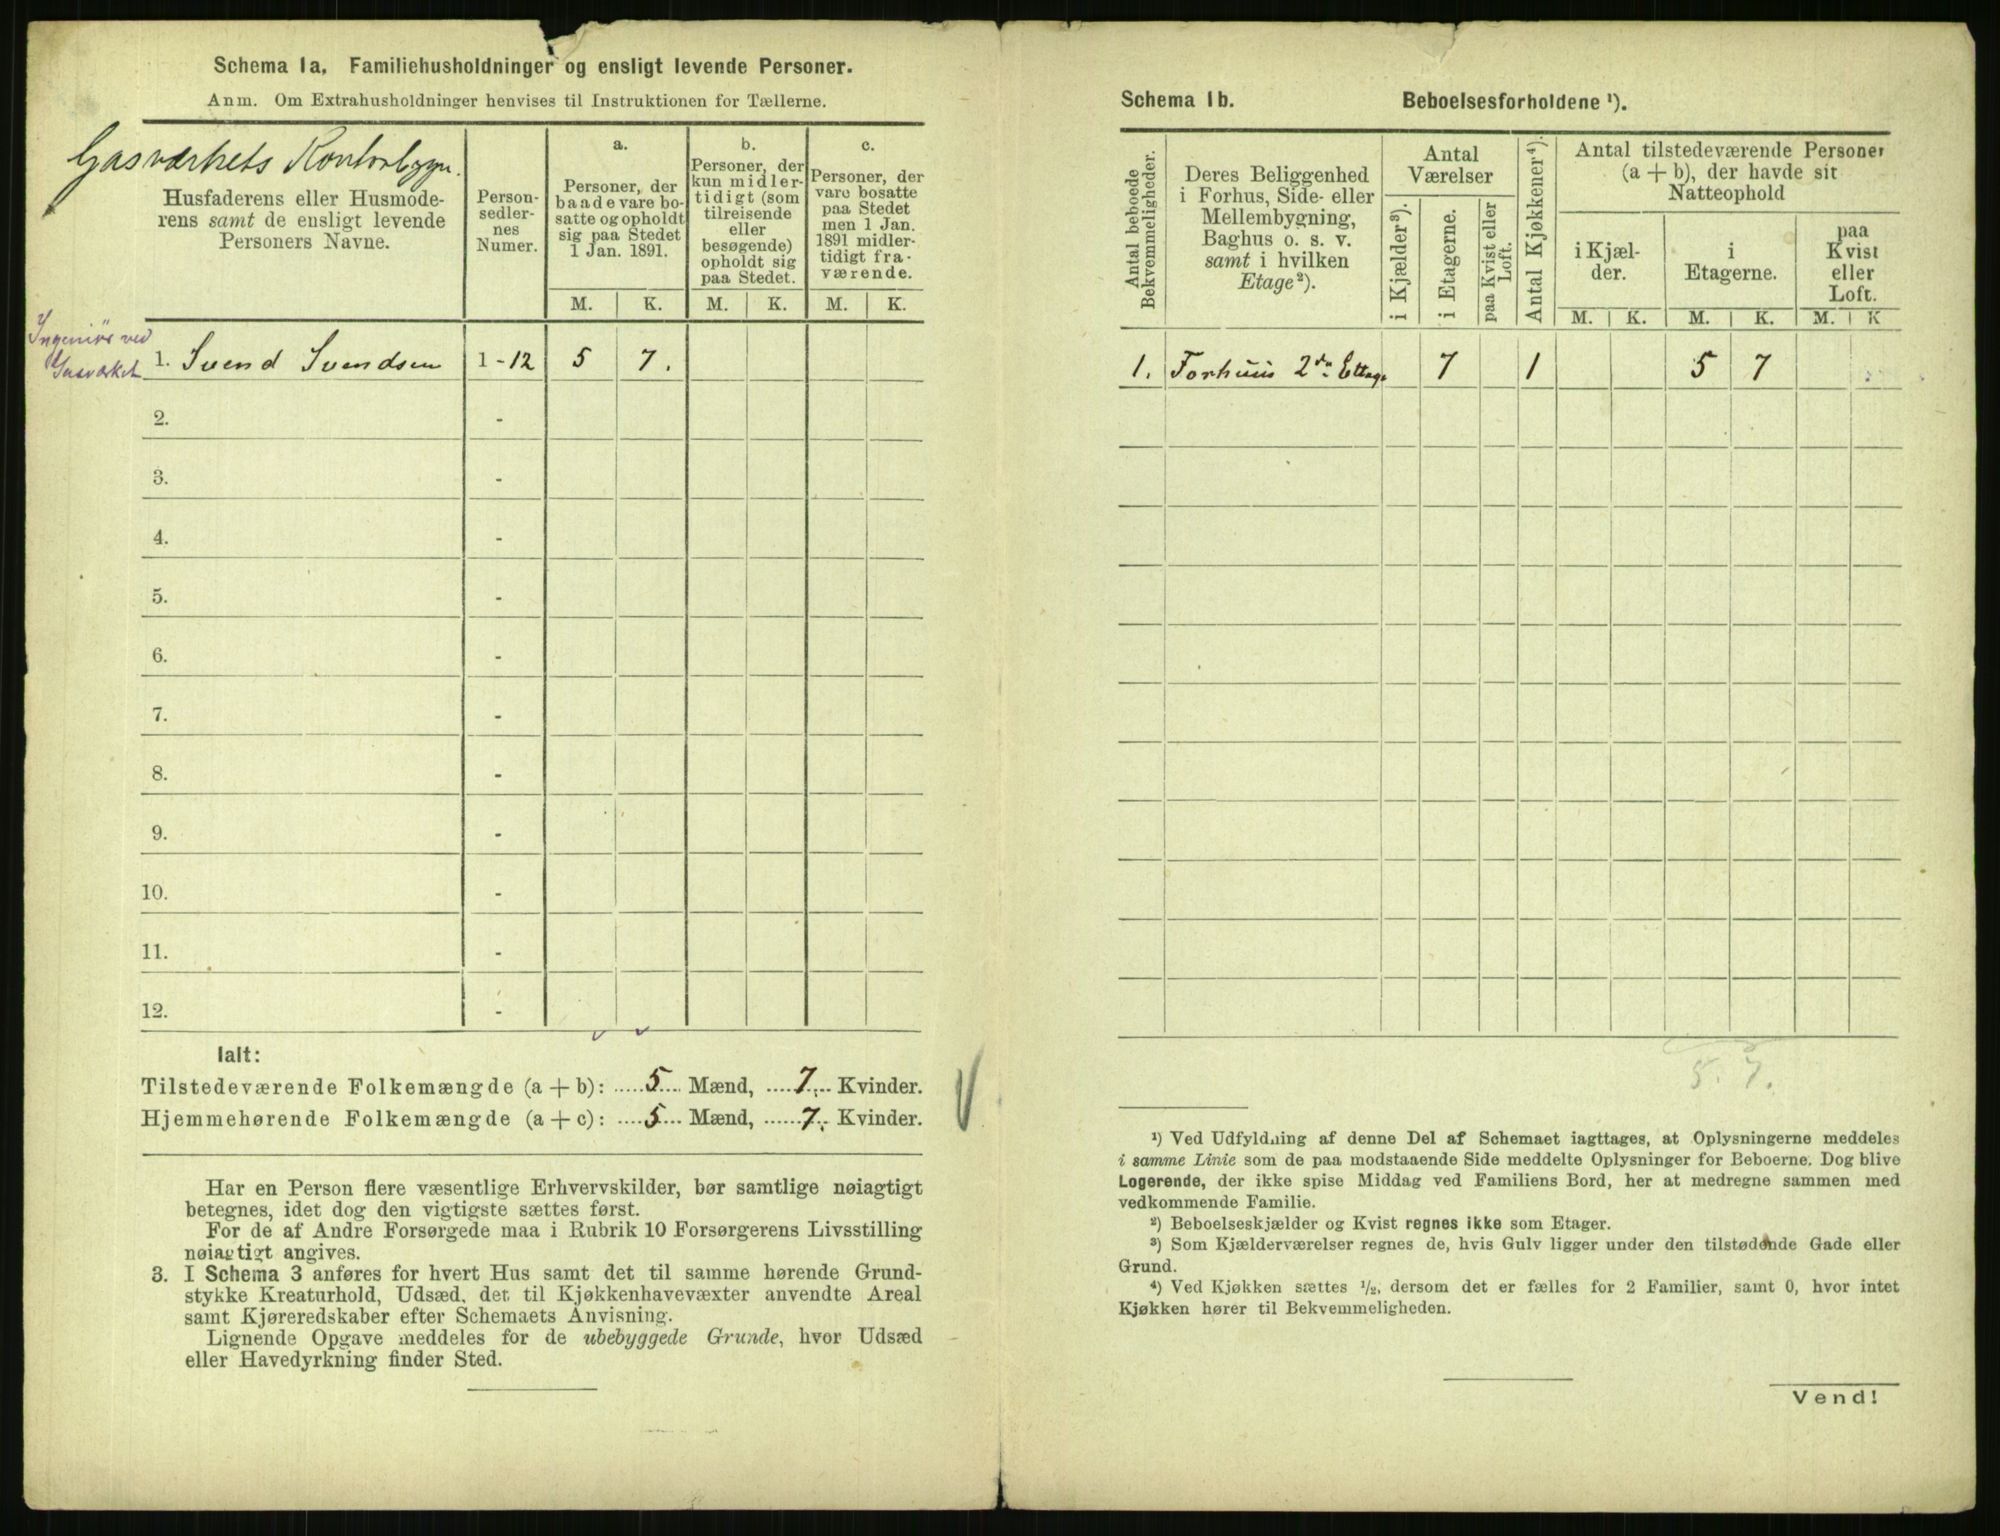 Schema 1a. Familiehusholdninger og ensligt levende Personer.
Anm. Om Extrahusholdninger henvises til Instruktionen for Tællerne.
Gasværkets Kontorbygn.
Husfaderens eller Husmode-
rens samt de ensligt levende
Personers Navne.
Person-
sedler-
nes
Numer.
a.
Personer, der
baade vare bo-
satte og opholdt
sig paa Stedet
1 Jan. 1891.
b.
Personer, der
kun midler-
tidigt (som
tilreisende
eller
besøgende)
opholdt sig
paa Stedet.
c.
Personer, der
vare bosatte
paa Stedet
men 1 Jan.
1891 midler-
tidigt fra-
værende.
M. K. M. K. M. K.
Ingeniör ved
Gasværket
1. Svend Svendsen 1-12 5 7.
2. -
3. -
4. -
5. -
6. -
7. -
8. -
9. -
10. -
11. -
12. -
Ialt:
Tilstedeværende Folkemængde (a + b): 5 Mænd, 7. Kvinder.
Hjemmehørende Folkemængde (a + c): 5 Mænd, 7. Kvinder.
Har en Person flere væsentlige Erhvervskilder, bør samtlige nøiagtigt
betegnes, idet dog den vigtigste sættes først.
For de af Andre Forsørgede maa i Rubrik 10 Forsørgerens Livsstilling
nøiagtigt angives.
3. I Schema 3 anføres for hvert Hus samt det til samme hørende Grund-
stykke Kreaturhold, Udsæd, det til Kjøkkenhavevæxter anvendte Areal
samt Kjøreredskaber efter Schemaets Anvisning.
Lignende Opgave meddeles for de ubebyggede Grunde, hvor Udsæd
eller Havedyrkning finder Sted.
Schema 1b. Beboelsesforholdene ¹).
Antal beboede
Bekvemmeligheder.
Deres Beliggenhed
i Forhus, Side- eller
Mellembygning,
Baghus o. s. v.
samt i hvilken
Etage ²).
Antal
Værelser
i Kjælder ³).
i Etagerne.
paa Kvist eller
Loft.
Antal Kjøkkener ⁴).
Antal tilstedeværende Personer
(a + b), der havde sit
Natteophold
i Kjæl-
der.
i
Etagerne.
paa
Kvist
eller
Loft.
M. K. M. K. M. K
1. Forhuus 2den Etage 7 1 5 7
5. 7.
¹) Ved Udfyldning af denne Del af Schemaet iagttages, at Oplysningerne meddeles
i samme Linie som de paa modstaaende Side meddelte Oplysninger for Beboerne. Dog blive
Logerende, der ikke spise Middag ved Familiens Bord, her at medregne sammen med
vedkommende Familie.
²) Beboelseskjælder og Kvist regnes ikke som Etager.
³) Som Kjælderværelser regnes de, hvis Gulv ligger under den tilstødende Gade eller
Grund.
⁴) Ved Kjøkken sættes ¹/₂, dersom det er fælles for 2 Familier, samt 0, hvor intet
Kjøkken hører til Bekvemmeligheden.
Vend!